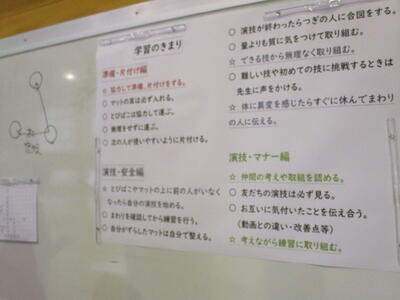 学習のきまり
準備・片付け編
☆ 協力して準備、片付けをする。
○ マットの耳は必ず入れる。
○ とびばこは協力して運ぶ。
○ 無理をせずに運ぶ。
○ 次の人が使いやすいように片付ける。
演技・安全編
☆ とびばこやマットの上に前の人がいなく
なったら自分の演技を始める。
○ まわりを確認してから練習を行う。
○ 自分がずらしたマットは自分で整える。
○ 演技が終わったらつぎの人に合図をする。
○ 量よりも質に気をつけて取り組む。
☆ できる技から無理なく取り組む。
○ 難しい技や初めての技に挑戦するときは
先生に声をかける。
☆ 体に異変を感じたらすぐに休んでまわり
の人に伝える。
演技・マナー編
☆ 仲間の考えや取組を認める。
○ 友だちの演技は必ず見る。
○ お互いに気付いたことを伝え合う。
（動画との違い・改善点等）
☆ 考えながら練習に取り組む。